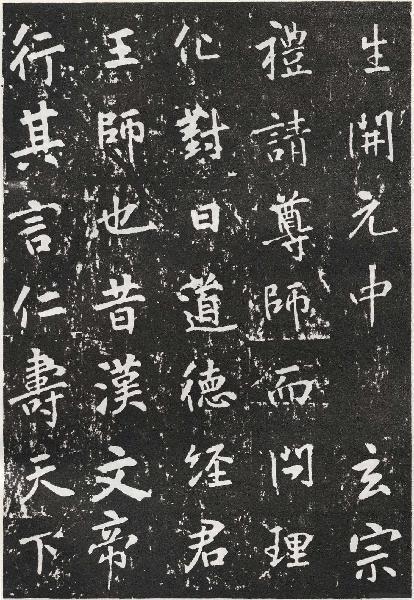 生開元中 玄宗
禮請尊師而問理
化對曰道德經君
王師也昔漢文帝
行其言仁壽天下